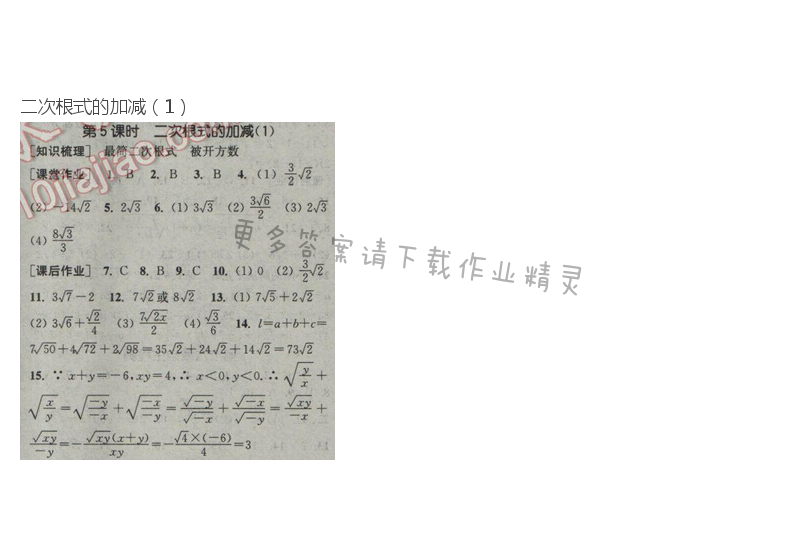 二次根式的加减（1）
第5课时 二次根式的加减(1)
[知识梳理] 最简二次根式 被开方数
[课堂作业] 1. B 2. B 3. B 4. (1) 3/2√2
(2) -14√2 5. 2√3 6. (1) 3√3 (2) 3√6/2 (3) 2√3
(4) 8√3/3
[课后作业] 7. C 8. B 9. C 10. (1) 0 (2) 3/2√2
11. 3√7-2 12. 7√2或8√2 13. (1) 7√5+2√2
(2) 3√6+√2/4 (3) 7√2x/2 (4) √3/6 14. l=a+b+c=
7√50+4√72+2√98=35√2+24√2+14√2=73√2
15. ∵ x+y=-6,xy=4,∴ x<0,y<0.∴ √(y/x)+
√(x/y)=√(-y/-x)+√(-x/-y)=√-y/√-x+√-x/√-y=√xy/-x+
√xy/-y=-√xy(x+y)/xy=-√4×(-6)/4=3
更多答案请下载作业精灵
10jiajiao.com